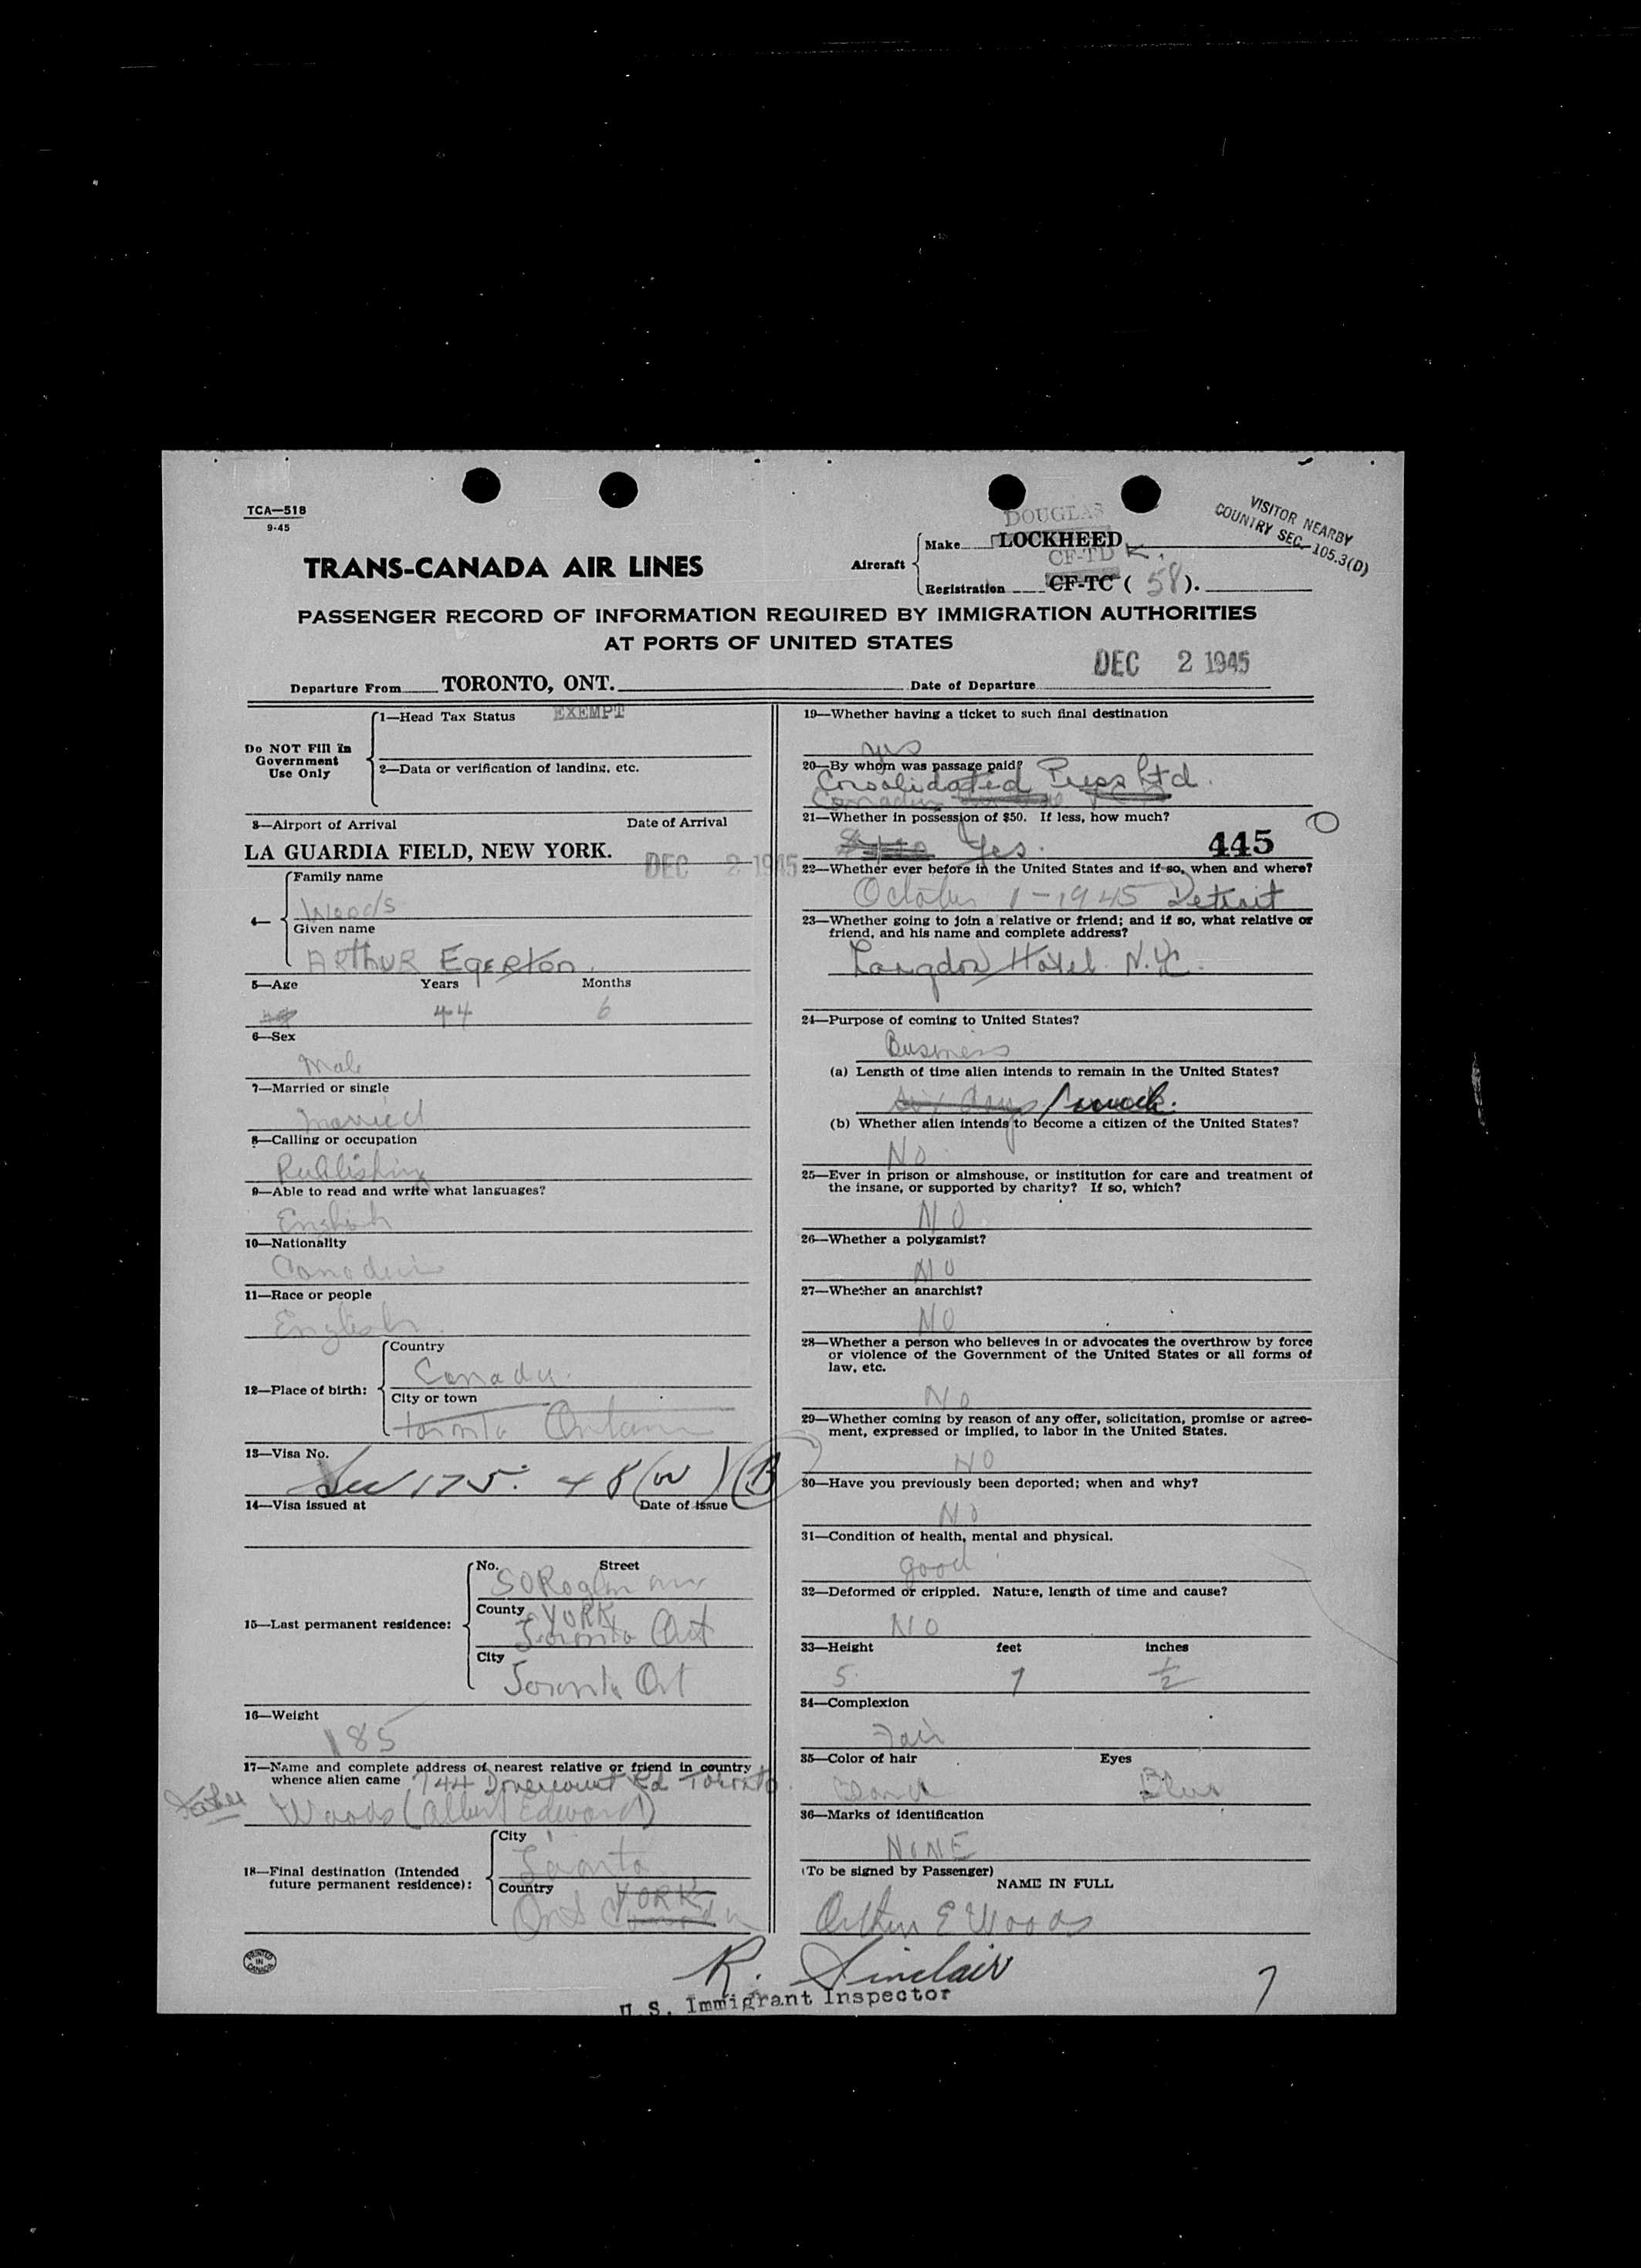 TCA—518
9-45
VISITOR NEARBY
COUNTRY SEC. 105.3(D)
TRANS-CANADA AIR LINES
Aircraft
DOUGLAS
Make LOCKHEED
CF-TD K.
Registration CF-TC ( 58 ).
PASSENGER RECORD OF INFORMATION REQUIRED BY IMMIGRATION AUTHORITIES
AT PORTS OF UNITED STATES
DEC 2 1945
Departure From TORONTO, ONT. Date of Departure
Do NOT Fill in
Government
Use Only
1—Head Tax Status EXEMPT
2—Data or verification of landing, etc.
3—Airport of Arrival Date of Arrival
LA GUARDIA FIELD, NEW YORK.
DEC 2 1945
4—
Family name
Woods
Given name
ARTHUR EGERTON.
5—Age Years Months
44 6
6—Sex
Male
7—Married or single
Married
8—Calling or occupation
Publishing
9—Able to read and write what languages?
English
10—Nationality
Canadian
11—Race or people
English
12—Place of birth:
Country
Canada.
City or town
Toronto Ontario
13—Visa No.
Sec 175. 48 (B)
14—Visa issued at Date of issue
15—Last permanent residence:
No. Street
50 Roglan ave
County YORK
Toronto Ont
City
Toronto Ont
16—Weight
185
17—Name and complete address of nearest relative or friend in country
whence alien came 744 Dovercourt Rd Toronto
Father Woods (Albert Edward)
18—Final destination (Intended
future permanent residence):
City
Toronto
Country YORK
Ont Canada
PRINTED
IN
CANADA
19—Whether having a ticket to such final destination
yes
20—By whom was passage paid?
Consolidated Press Ltd.
21—Whether in possession of $50. If less, how much?
Yes. 445
22—Whether ever before in the United States and if so, when and where?
October 1-1945 Detroit
23—Whether going to join a relative or friend; and if so, what relative or
friend, and his name and complete address?
Langdon Hotel N.Y.C.
24—Purpose of coming to United States?
Business
(a) Length of time alien intends to remain in the United States?
six days 1 week.
(b) Whether alien intends to become a citizen of the United States?
No
25—Ever in prison or almshouse, or institution for care and treatment of
the insane, or supported by charity? If so, which?
NO
26—Whether a polygamist?
NO
27—Whether an anarchist?
NO
28—Whether a person who believes in or advocates the overthrow by force
or violence of the Government of the United States or all forms of
law, etc.
No
29—Whether coming by reason of any offer, solicitation, promise or agree-
ment, expressed or implied, to labor in the United States.
NO
30—Have you previously been deported; when and why?
NO
31—Condition of health, mental and physical.
good
32—Deformed or crippled. Nature, length of time and cause?
NO
33—Height feet inches
5 7 1/2
34—Complexion
Fair
35—Color of hair Eyes
Blond Blue
36—Marks of identification
NONE
(To be signed by Passenger)
NAME IN FULL
Arthur E Woods
R. Sinclair
U.S. Immigrant Inspector
7